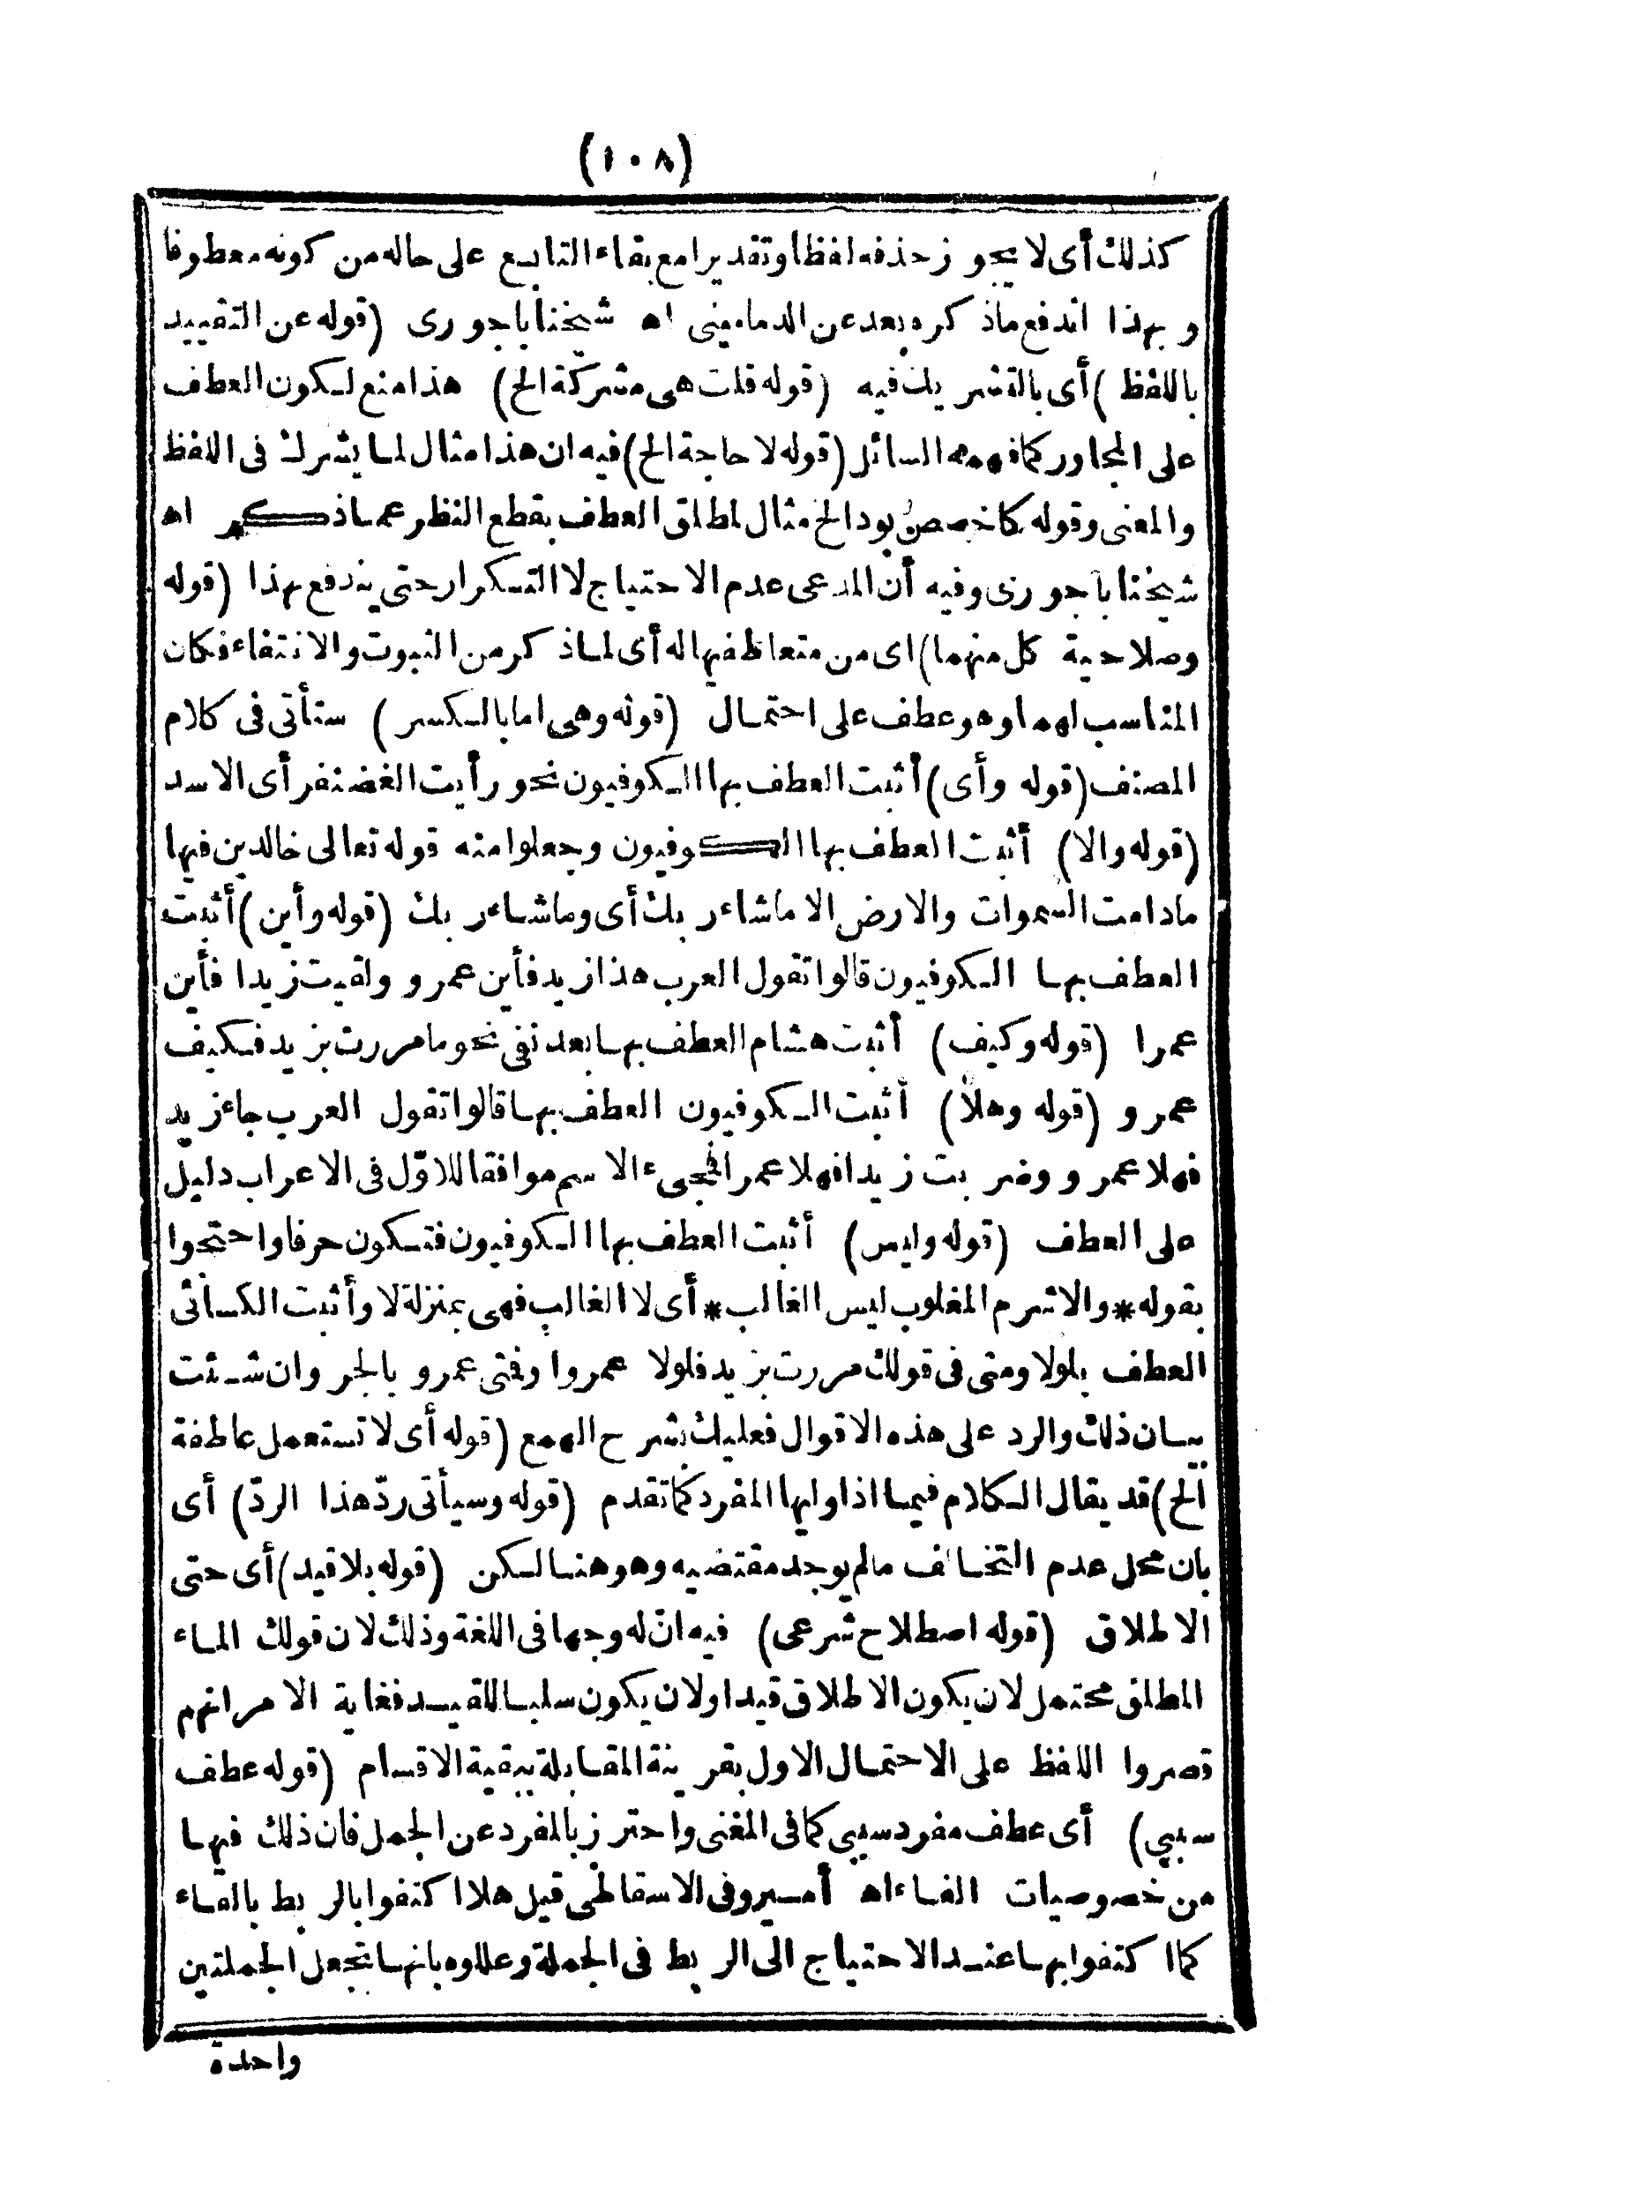 (١٠٨)
كذلك أى لا يجوز حذفه لفظا وتقديرا مع بقاء التابع على حاله من كونه معطوفا
وبهذا اندفع ماذكره بعد عن الدمامينى اه شيخنا باجورى (قوله عن التقييد
باللفظ) أى بالتشريك فيه (قوله قلت هى مشركة الخ) هذا منع لكون العطف
على المجاور كما فهمه السائل (قوله لا حاجة الخ) فيه ان هذا مثال لما يشرك فى اللفظ
والمعنى وقوله كاخصص بود الخ مثال لمطلق العطف بقطع النظر عما ذكر اه
شيخنا باجورى وفيه أن المدعى عدم الاحتياج لا التكرار حتى يندفع بهذا (قوله
وصلاحية كل منهما) اى من متعاطفيها له أى لما ذكر من الثبوت والانتفاء فكان
المناسب لهما وهو عطف على احتمال (قوله وهى اما بالكسر) ستأتى فى كلام
المصنف (قوله وأى) أثبت العطف بها الكوفيون نحو رأيت الغضنفر أى الاسد
(قوله والا) أثبت العطف بها الكوفيون وجعلوا منه قوله تعالى خالدين فيها
مادامت السموات والارض الا ماشاء ربك أى وماشاء ربك (قوله وأين) أثبت
العطف بها الكوفيون قالوا تقول العرب هذا زيد فأين عمرو ولقيت زيدا فأين
عمرا (قوله وكيف) أثبت هشام العطف بها بعد نفى نحو ما مررت بزيد فكيف
عمرو (قوله وهلا) أثبت الكوفيون العطف بها قالوا تقول العرب جاء زيد
فهلا عمرو وضربت زيدا فهلا عمرا فمجىء الاسم موافقا للاوّل فى الاعراب دليل
على العطف (قوله وليس) أثبت العطف بها الكوفيون فتكون حرفا واحتجوا
بقوله * والاشرم المغلوب ليس الغالب * أى لا الغالب فهى بمنزلة لا وأثبت الكسائى
العطف بلولا ومتى فى قولك مررت بزيد فلولا عمروا وفتى عمرو بالجر وان شئت
بيان ذلك والرد على هذه الاقوال فعليك بشرح الهمع (قوله أى لا تستعمل عاطفة
الخ) قد يقال الكلام فيما اذا وليها المفرد كما تقدم (قوله وسيأتى ردّ هذا الردّ) أى
بان محل عدم التخالف مالم يوجد مقتضيه وهو هنا لسكن (قوله بلا قيد) أى حتى
الاطلاق (قوله اصطلاح شرعى) فيه انّ له وجها فى اللغة وذلك لان قولك الماء
المطلق محتمل لان يكون الاطلاق قيدا ولان يكون سلبا للقيد فغاية الامر انهم
قصروا اللفظ على الاحتمال الاول بقرينة المقابلة ببقية الاقسام (قوله عطف
سببي) أى عطف مفرد سببي كما فى المغنى واحترز بالمفرد عن الجمل فان ذلك فيها
من خصوصيات الفاء اه أمسير وفى الاسقاطى قيل هلا اكتفوا بالربط بالفاء
كما اكتفوا بها عند الاحتياج الى الربط فى الجملة وعللوه بانها تجعل الجملتين
واحدة